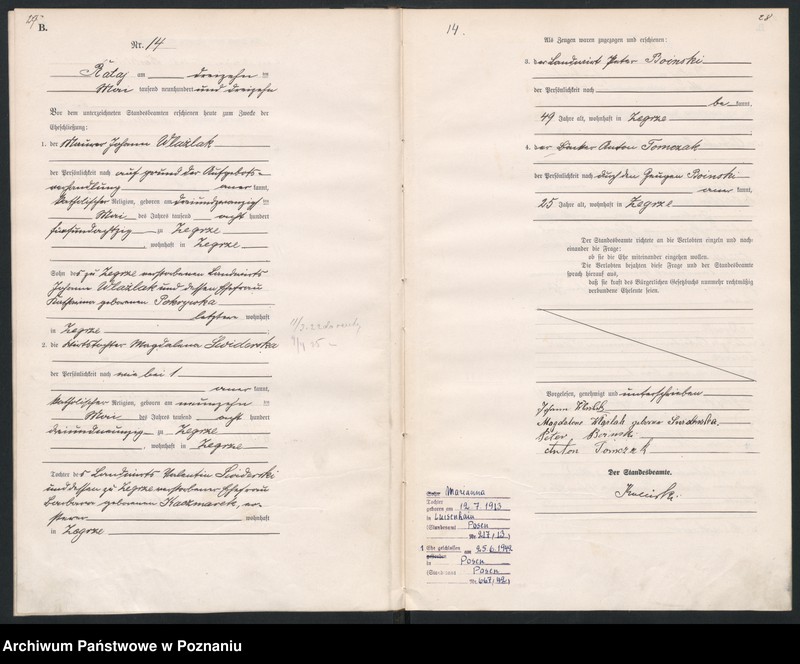 27
B.
Nr. 14
Rataj am dreizehn ten
Mai tausend neunhundert und dreizehn
Vor dem unterzeichneten Standesbeamten erschienen heute zum Zwecke der
Eheschließung:
1. der Maurer Johann Wlaźlak
der Persönlichkeit nach auf grund der Aufgebots-
verhandlung aner kannt,
katholischer Religion, geboren am dreiundzwanzig ten
Mai des Jahres tausend acht hundert
fünfundachtzig zu Zegrze
, wohnhaft in Zegrze
Sohn des zu Zegrze verstorbenen Landwirts
Johann Wlaźlak und dessen Ehefrau
geborenen
letztere wohnhaft
in Zegrze
2. die Wirtstochter Magdalena Swiderska
der Persönlichkeit nach wie bei 1
aner kannt,
katholischer Religion, geboren am neunzehn ten
Mai des Jahres tausend acht hundert
dreiundneunzig zu Zegrze
, wohnhaft in Zegrze
Tochter des Landwirts Valentin Swiderski
und dessen zu Zegrze verstorbenen Ehefrau
Barbara geborenen Kaczmarek, er-
sterer wohnhaft
in Zegrze
14.
28
Als Zeugen waren zugezogen und erschienen:
3. der Landwirt Peter Boinski
der Persönlichkeit nach
be kannt,
49 Jahre alt, wohnhaft in Zegrze
4. der Bäcker Anton Tomczak
der Persönlichkeit nach durch den Zeugen Boinski
aner kannt,
25 Jahre alt, wohnhaft in Zegrze
Der Standesbeamte richtete an die Verlobten einzeln und nach-
einander die Frage:
ob sie die Ehe miteinander eingehen wollen.
Die Verlobten bejahten diese Frage und der Standesbeamte
sprach hierauf aus,
daß sie kraft des Bürgerlichen Gesetzbuchs nunmehr rechtmäßig
verbundene Eheleute seien.
Vorgelesen, genehmigt und unterschrieben
Johann Wlaźlak
Magdalena Wlaźlak geborene Swiderska.
Peter Boinski
Anton Tomczak
Der Standesbeamte.
Marianna
Tochter
geboren am 12.7.1913
in Luisenhain
(Standesamt Posen
Nr. 217/13)
1 Ehe geschlossen am 25.6.1942
in Posen
(Standesamt Posen
Nr. 667/42)
Archiwum Państwowe w Poznaniu